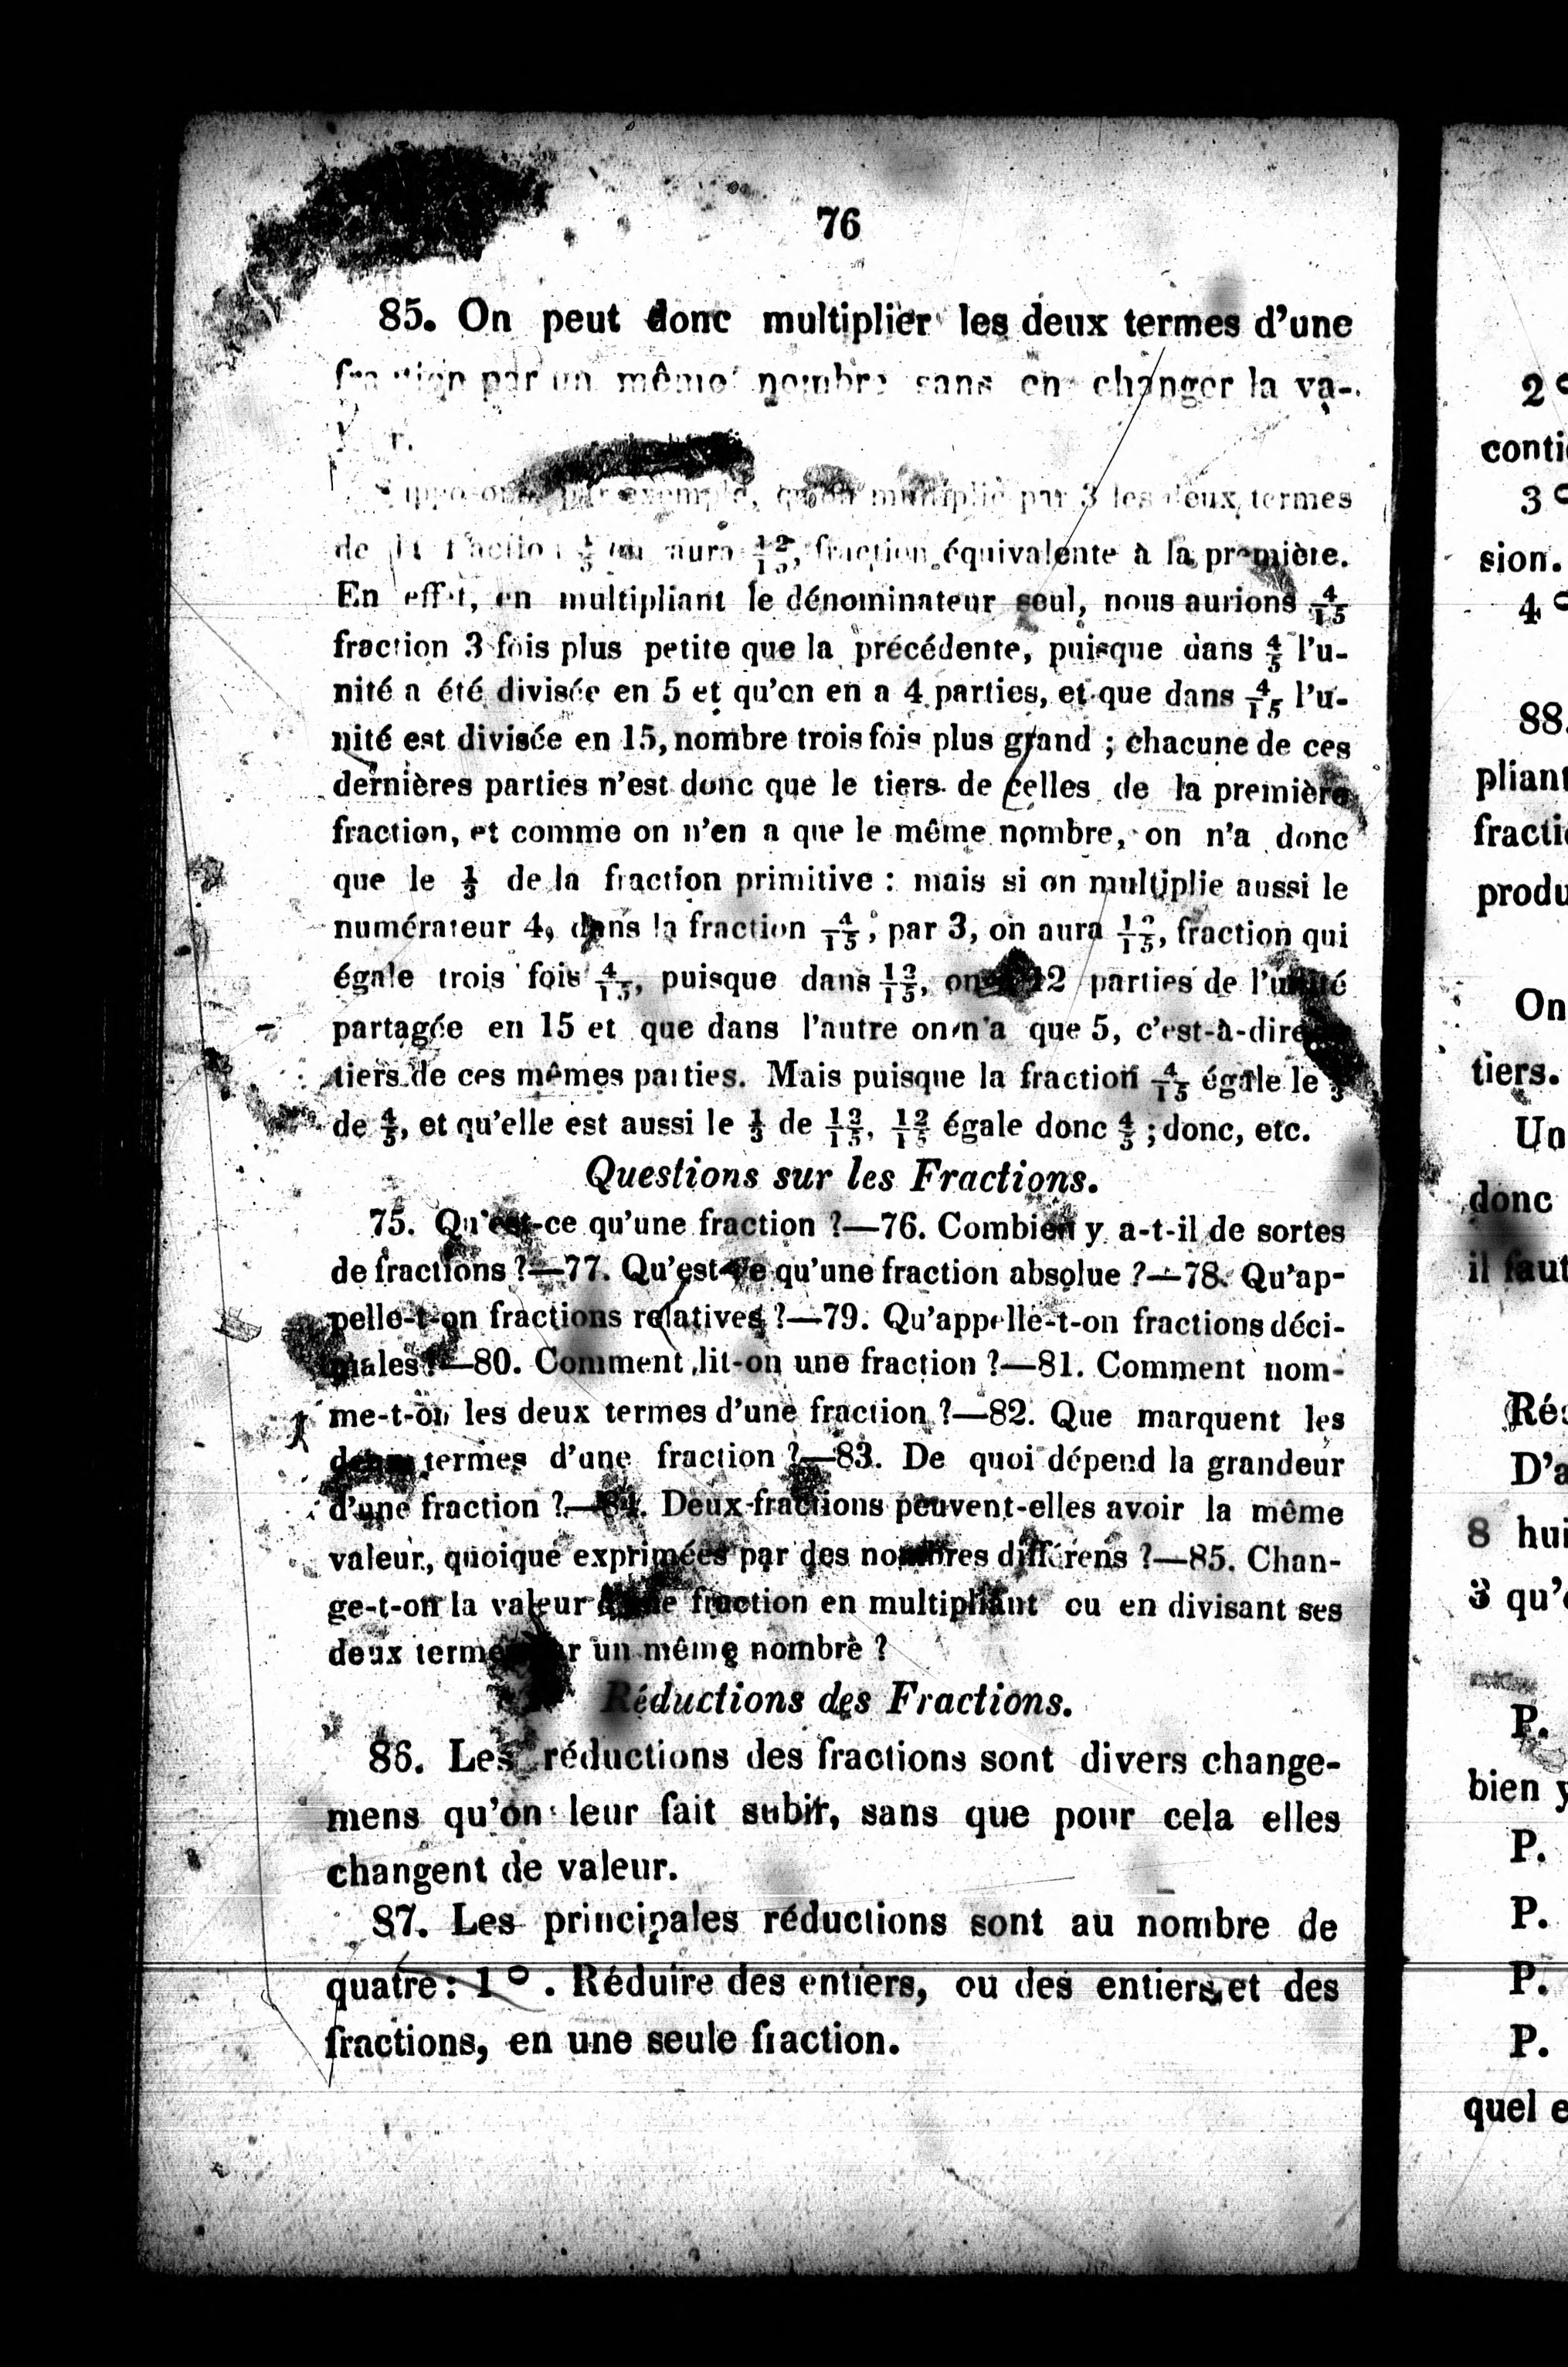 76
85. On peut donc multiplier les deux termes d'une
fraction par un même nombre sans en changer la va-
r.
Supposons, par exemple, qu'on multiplie par 3 les deux termes
de la fraction 4/5 on aura 12/15, fraction équivalente à la première.
En effet, en multipliant le dénominateur seul, nous aurions 4/15
fraction 3 fois plus petite que la précédente, puisque dans 4/5 l'u-
nité a été divisée en 5 et qu'on en a 4 parties, et que dans 4/15 l'u-
nité est divisée en 15, nombre trois fois plus grand ; chacune de ces
dernières parties n'est donc que le tiers de celles de la première
fraction, et comme on n'en a que le même nombre, on n'a donc
que le 1/3 de la fraction primitive : mais si on multiplie aussi le
numérateur 4, dans la fraction 4/15, par 3, on aura 12/15, fraction qui
égale trois fois 4/15, puisque dans 12/15, on 12 parties de l'unité
partagée en 15 et que dans l'autre on n'a que 5, c'est-à-dire
tiers de ces mêmes parties. Mais puisque la fraction 4/15 égale le 1/3
de 4/5, et qu'elle est aussi le 1/3 de 12/15, 12/15 égale donc 4/5 ; donc, etc.
Questions sur les Fractions.
75. Qu'est-ce qu'une fraction ?—76. Combien y a-t-il de sortes
de fractions ?—77. Qu'est-ce qu'une fraction absolue ?—78. Qu'ap-
pelle-t-on fractions relatives ?—79. Qu'appelle-t-on fractions déci-
males ?—80. Comment lit-on une fraction ?—81. Comment nom-
me-t-on les deux termes d'une fraction ?—82. Que marquent les
deux termes d'une fraction ?—83. De quoi dépend la grandeur
d'une fraction ?—84. Deux fractions peuvent-elles avoir la même
valeur, quoique exprimées par des nombres différens ?—85. Chan-
ge-t-on la valeur d'une fraction en multipliant ou en divisant ses
deux termes par un même nombre ?
Réductions des Fractions.
86. Les réductions des fractions sont divers change-
mens qu'on leur fait subir, sans que pour cela elles
changent de valeur.
87. Les principales réductions sont au nombre de
quatre : 1º. Réduire des entiers, ou des entiers et des
fractions, en une seule fraction.
2º
conti
3º
sion.
4º
88.
pliant
fracti
produ
On
tiers.
Un
donc
il faut
Rés
D'a
8 hui
3 qu'
P.
bien y
P.
P.
P.
P.
quel e